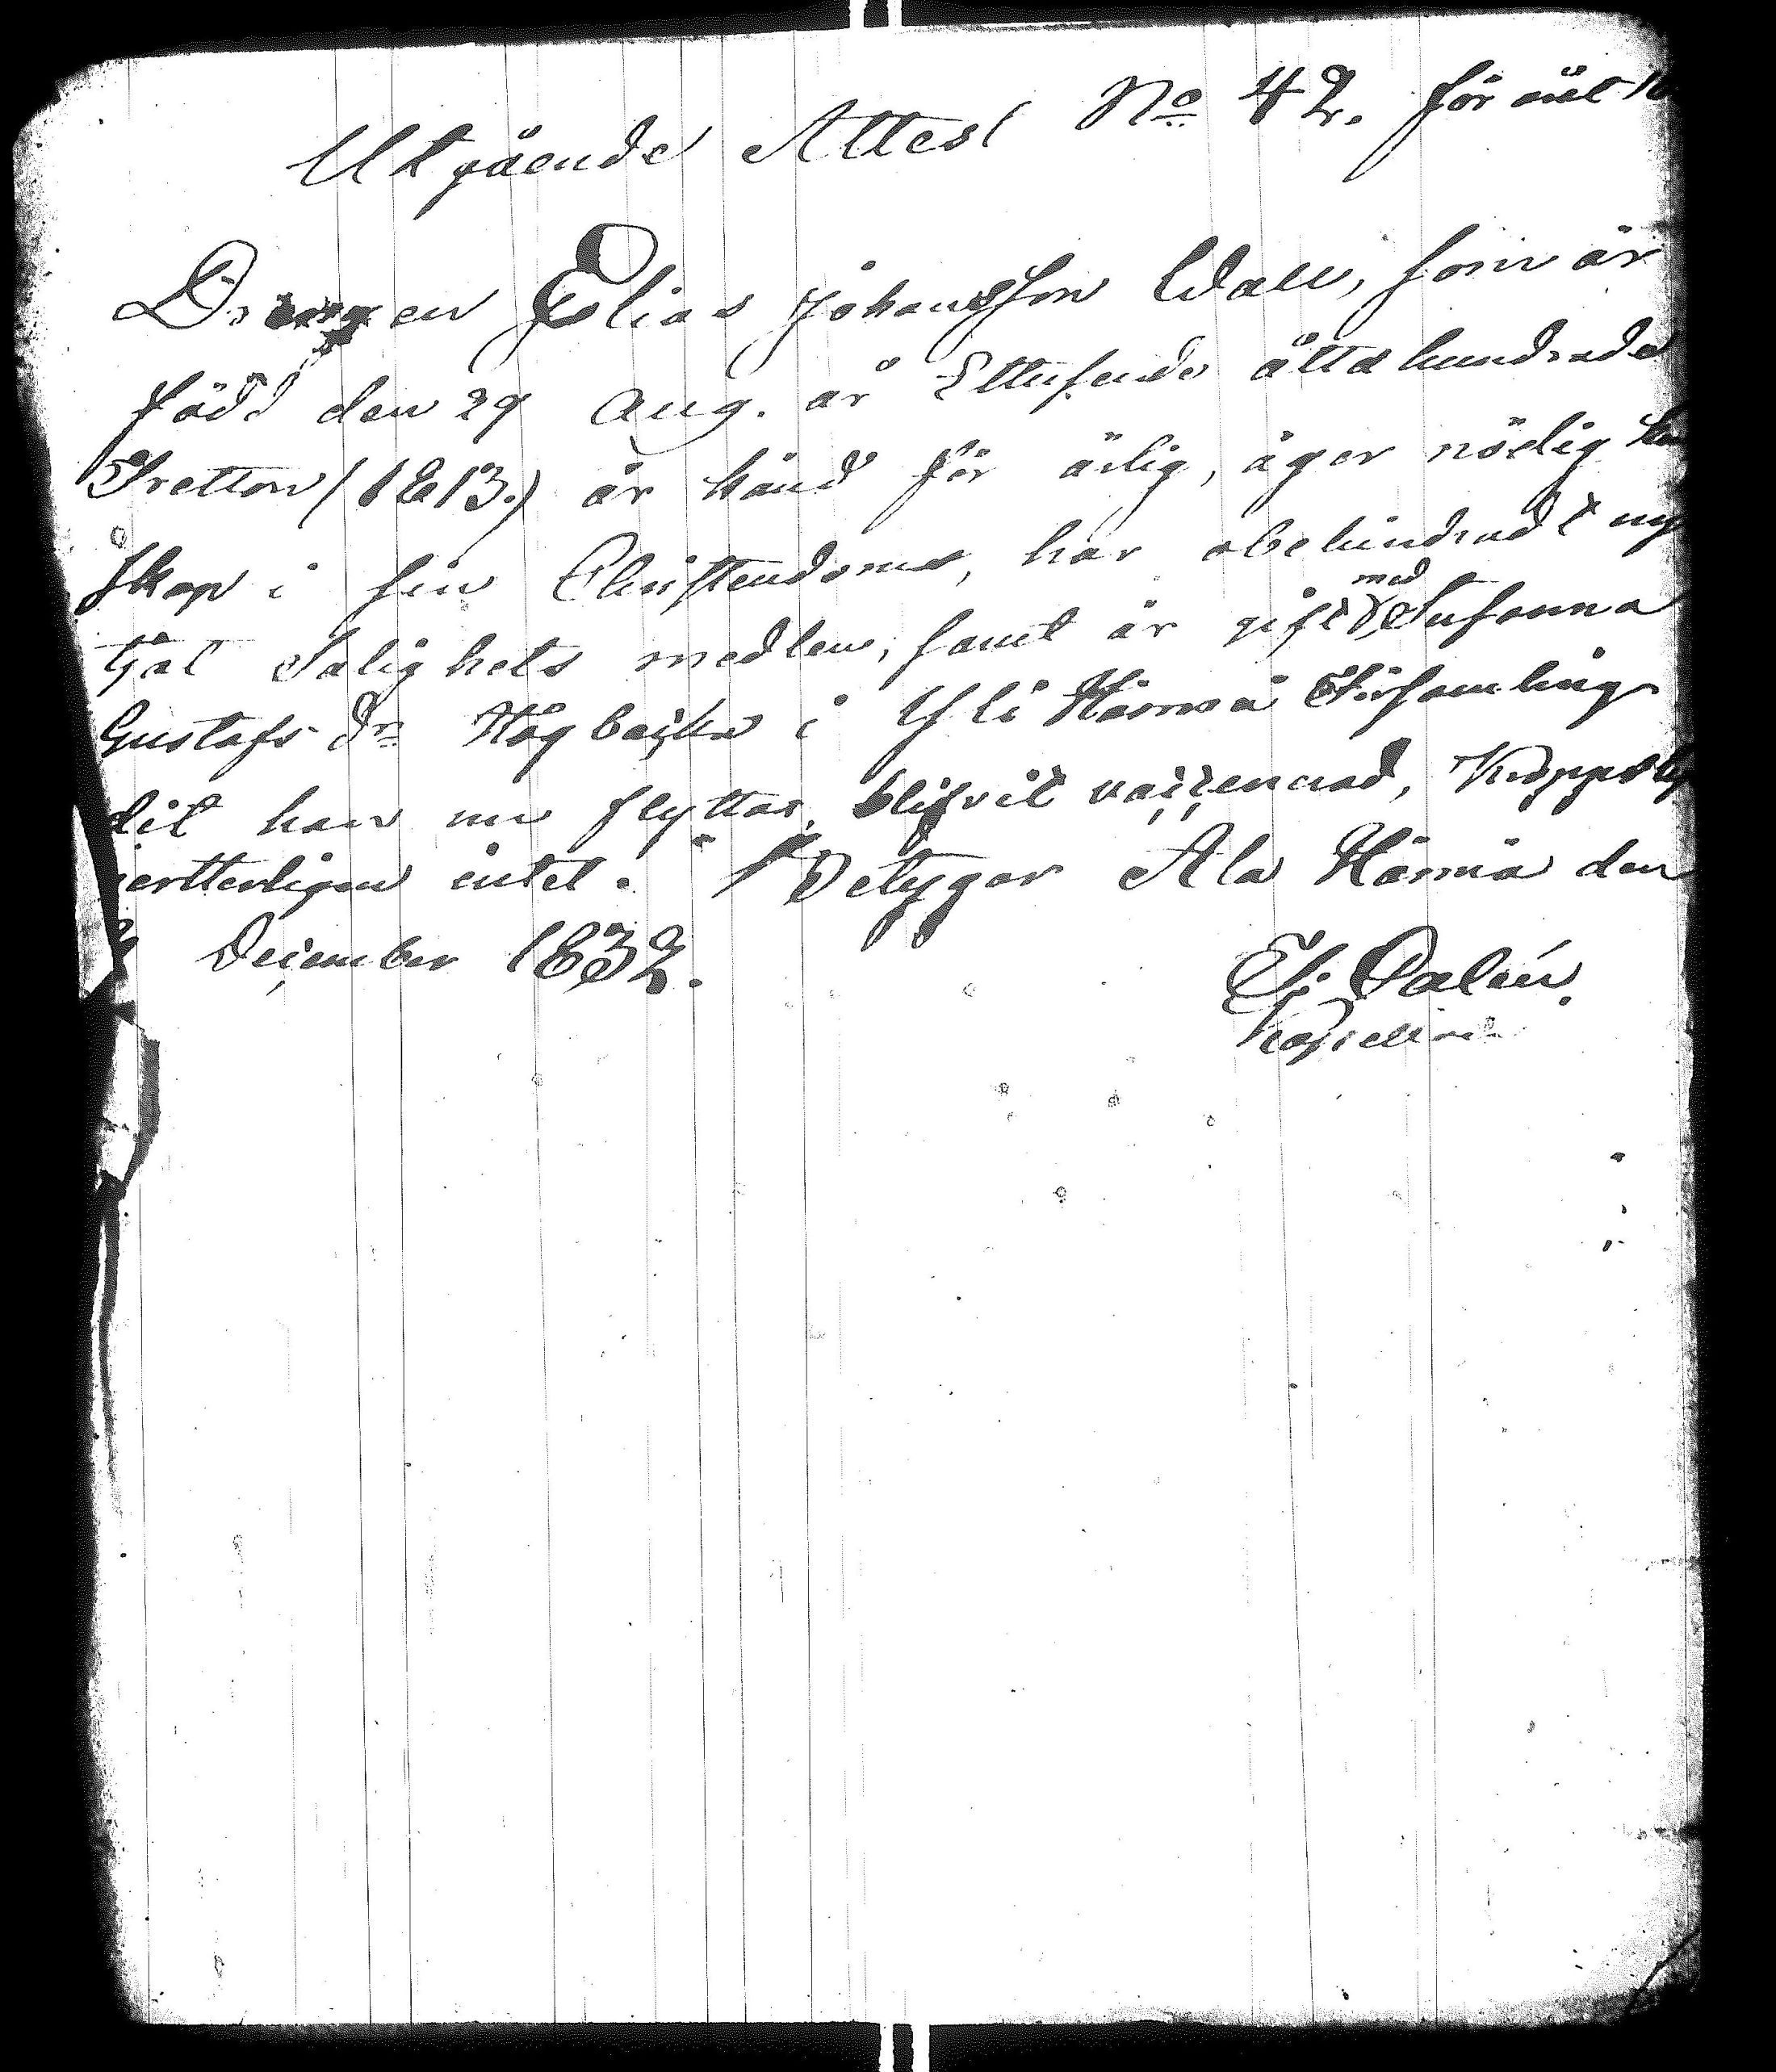 Utgående Attest No 42. för året
Drengen Elias Johansson Wall, som är
född den 29 Aug. år Ettusende åtta hundrade
Tretton (1813.) är känd för ärlig, äger nödig
skap i sin Christendoms, har obehindradt
tjat Salighets medlen, samt är gift med Susanna
Gustafs dr Högbacka i Yli Härmä Församling
dit han nu flyttar, blifvit vaccenerad,
intet. Betygar Ala Härmä den
December 1832.
Dalén.
Kapellan